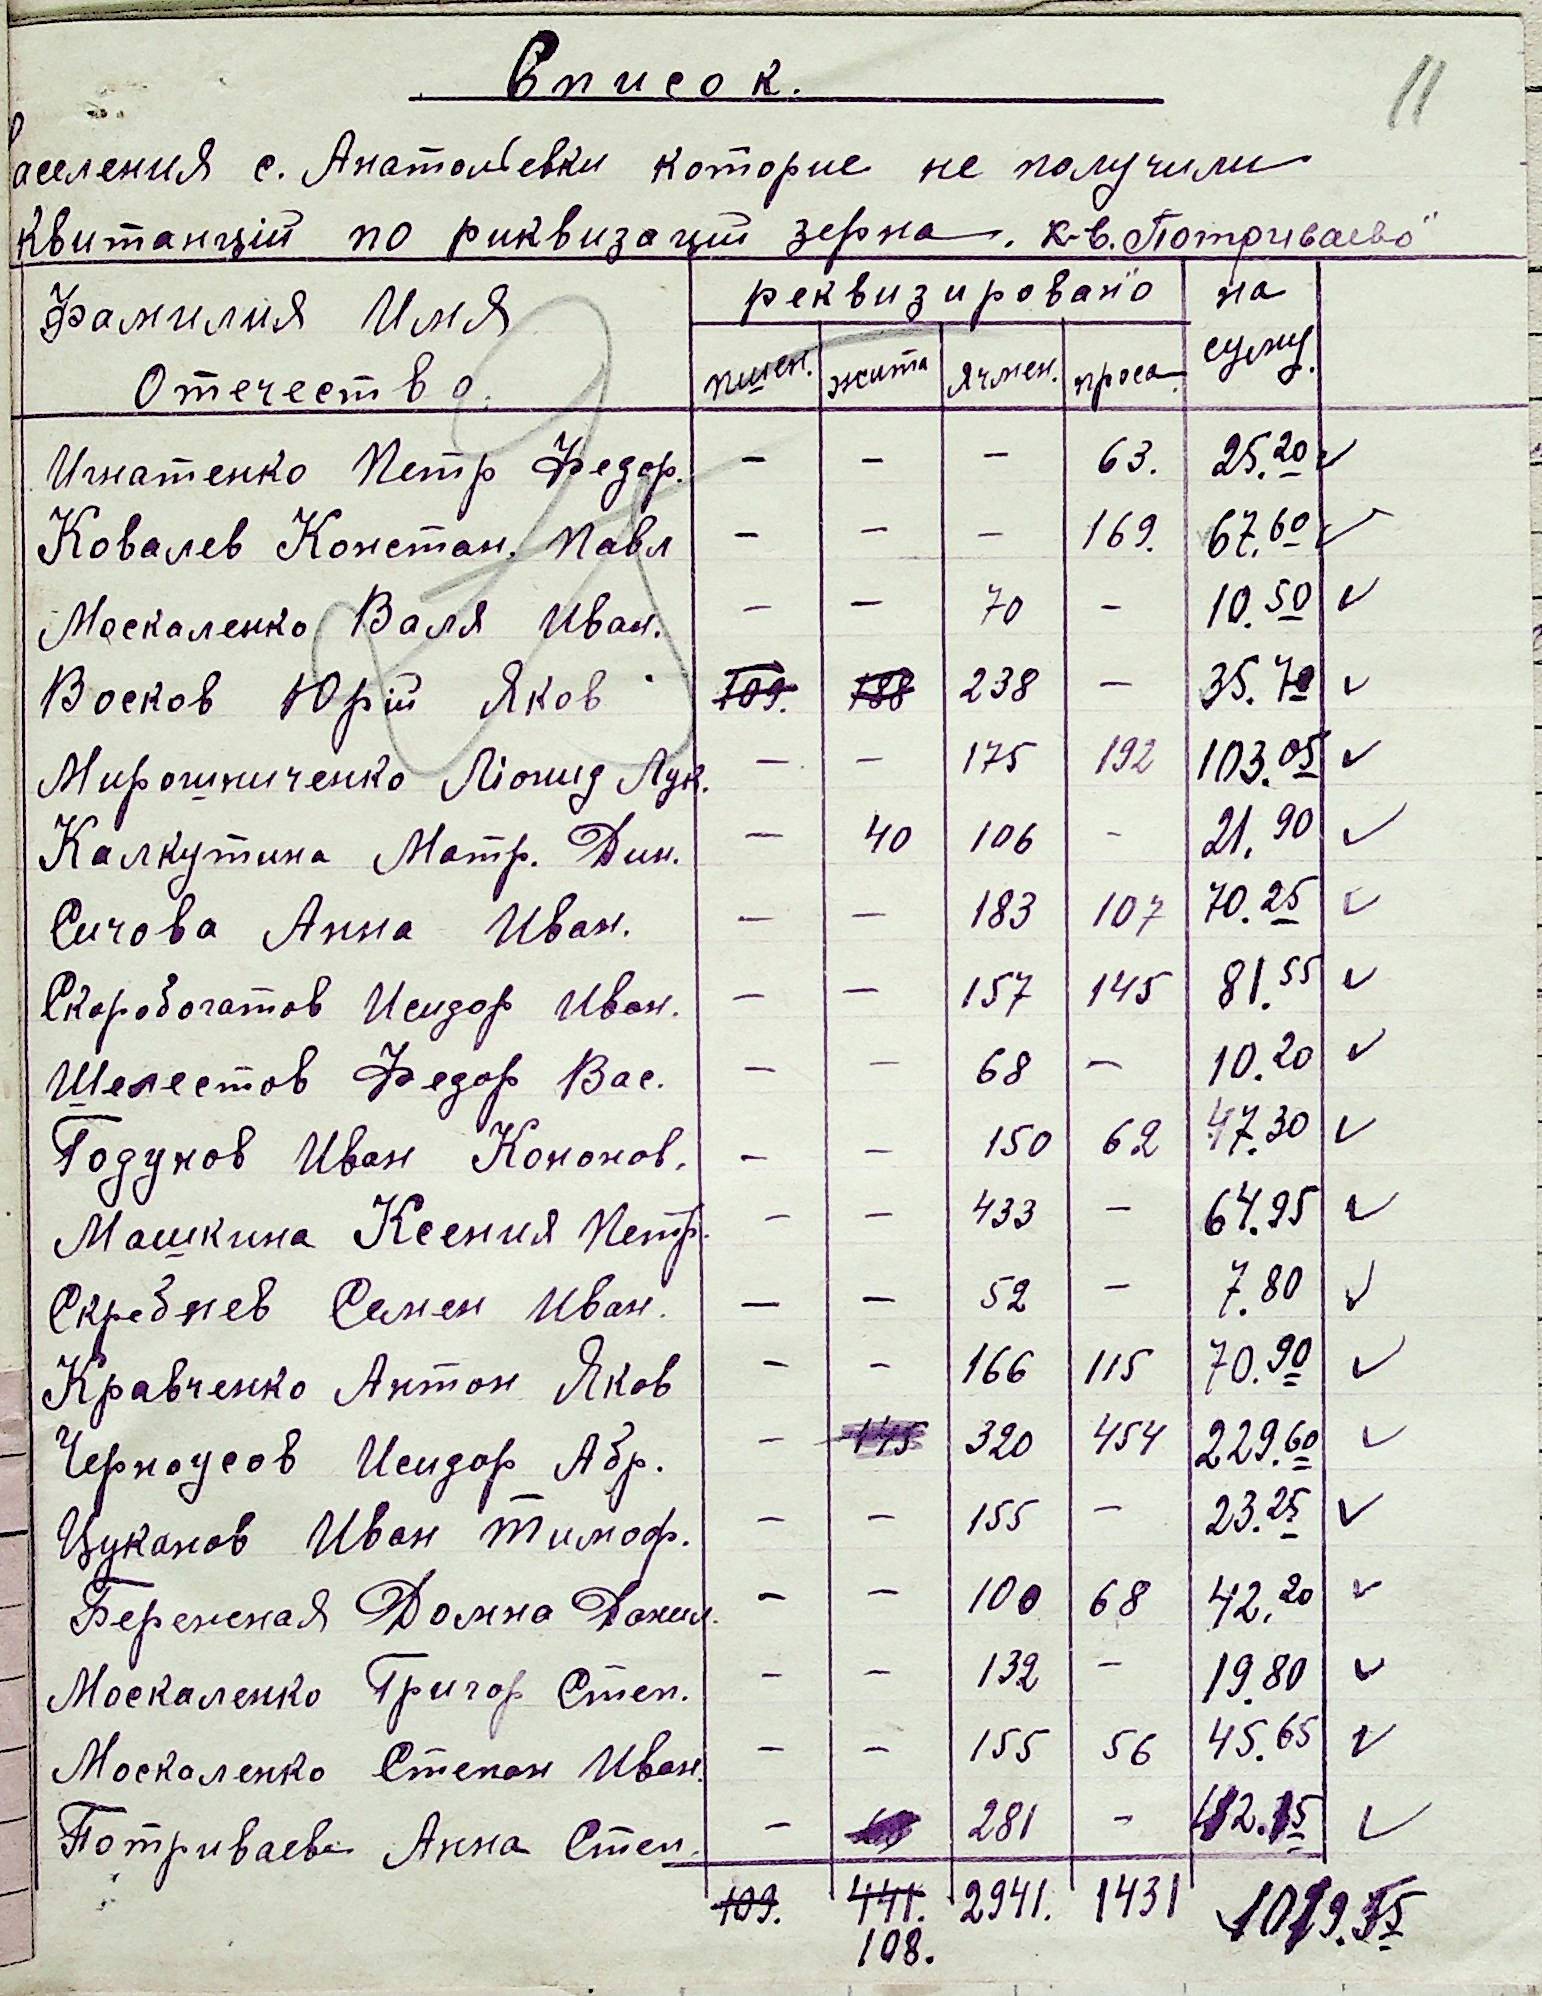 Список.
11
населения с. Анатольевки которие не получили
квитанцій по риквизаціи зерна. к-в. "Потриваево"
Фамилия Имя реквизировано на
Отечество. пшен. жита ячмен. проса. сумму.
Игнатенко Петр Федор. – – – 63. 25.20 ✓
Ковалев Констан. Павл – – – 169. 67.60 ✓
Москаленко Валя Иван. – – 70 – 10.50 ✓
Восков Юрій Яков 109. 188 238 – 35.70 ✓
Мирошниченко Ліонид Лук. – – 175 192 103.05 ✓
Калкутина Матр. Дин. – 40 106 – 21.90 ✓
Сичова Анна Иван. – – 183 107 70.25 ✓
Скоробогатов Исидор Иван. – – 157 145 81.55 ✓
Шелестов Федор Вас. – – 68 – 10.20 ✓
Годунов Иван Кононов. – – 150 62 47.30 ✓
Машкина Ксения Петр. – – 433 – 64.95 ✓
Скребнев Семен Иван. – – 52 – 7.80 ✓
Кравченко Антон Яков – – 166 115 70.90 ✓
Черноусов Исидор Абр. – 145 320 454 229.60 ✓
Цуканов Иван Тимоф. – – 155 – 23.25 ✓
Домна Данил. – – 100 68 42.20 ✓
Москаленко Григор Степ. – – 132 – 19.80 ✓
Москаленко Степан Иван. – – 155 56 45.65 ✓
Потриваева Анна Степ. – 281 – 42.15 ✓
109. 441. 2941. 1431
108.